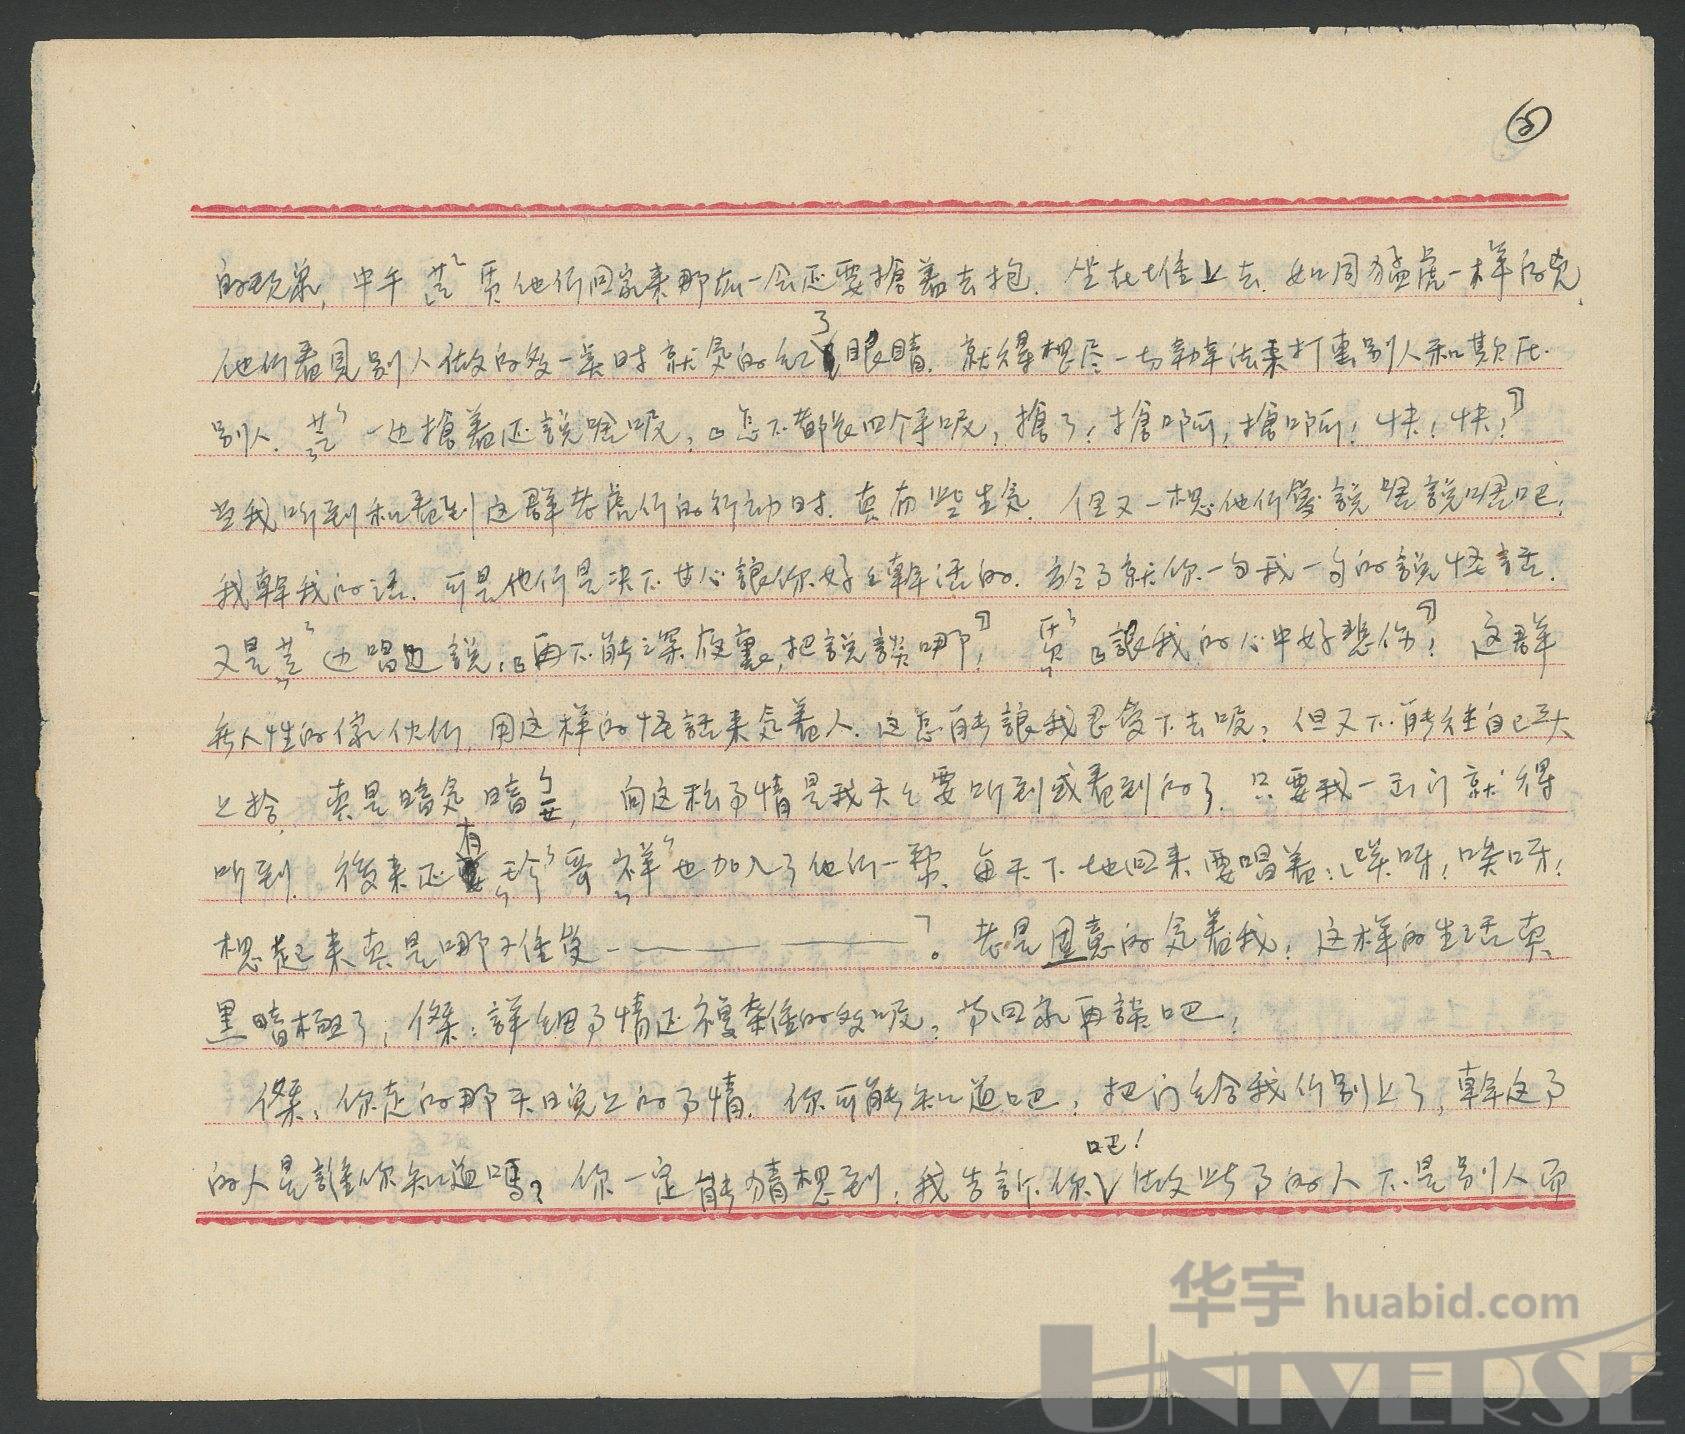 ⑤
的现象，中午芸贾他们回家来那麽一会还要搶着去抱．坐在堆上去．如同猛虎一样的兇，
他们看見别人做的多一点时就気的红了眼睛．就得想尽一切办法来打击别人和欺压
别人．芸一边搶着还說啥呢，「怎不都长四个手呢，搶了！搶啊，搶啊！快！快！」
当我听到和看到这群老虎们的行动时．真有些生気．但又一想他们愛說啥說啥吧！
我幹我的活．可是他们是决不甘心讓你好々幹活的．为了就你一句我一句的說怪話．
又是芸边唱边說：「再不能深夜裏，把說談哪」！贾「讓我的心中好悲伤」！这群
無人性的傢伙们，用这样的怪話来気着人．这怎能讓我忍受下去呢？但又不能往自已头
上捡．真是暗気暗 ，向这松事情是我天々要听到或看到的了．只要我一出门就得
听到．後来还有珍哥 祥也加入了他们一夥．每天下地回来要唱着：「唉呀！唉呀！
想起来真是哪不佳受———」。老是固意的気着我！这样的生活真
黑暗極了；傑：詳细事情还複雜的多呢，等回家再談吧！
傑：你走的那天晚上的事情．你可能知道吧，把门给我们别上了，幹这事
的人是誰你知道嗎？你一定能猜想到！我告訴你吧！做些事的人不是别人而
华宇 huabid.com
UNIVERSE